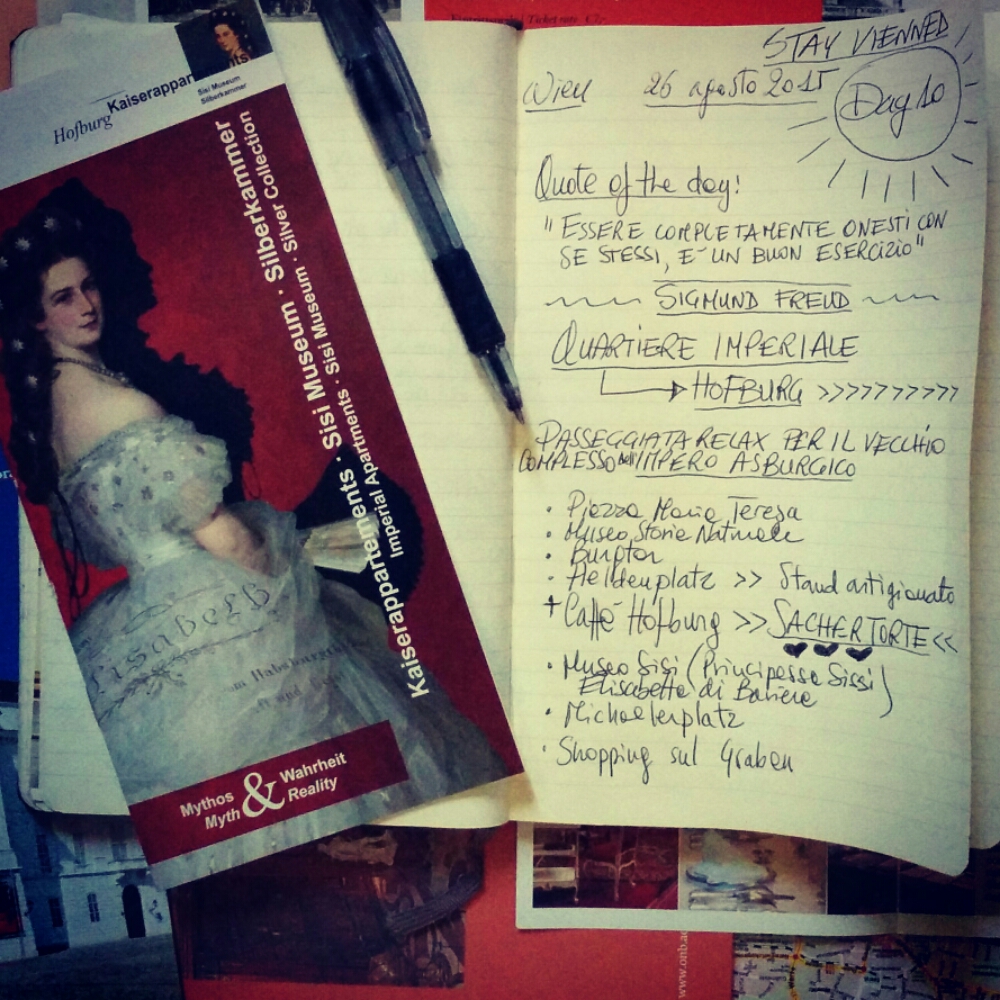 Hofburg
Kaiserappartements
Sisi Museum
Silberkammer
Kaiserappartements · Sisi Museum · Silberkammer
Imperial Apartments · Sisi Museum · Silver Collection
Elisabeth
Mythos & Wahrheit
Myth & Reality
Ticket rate €7,-
STAY VIENNED
Wien 26 agosto 2015
Day 10
Quote of the day!
"ESSERE COMPLETAMENTE ONESTI CON
SE STESSI, E' UN BUON ESERCIZIO"
SIGMUND FREUD
QUARTIERE IMPERIALE
HOFBURG >>>>>>>>>>
PASSEGGIATA RELAX PER IL VECCHIO
COMPLESSO dell'IMPERO ASBURGICO
· Piazza Maria Teresa
· Museo Storia Naturale
· Burgtor
· Heldenplatz >> Stand artigianato
+ Caffè Hofburg >> SACHERTORTE <<
· Museo Sisi (Principessa Sissi
Elisabetta di Baviera)
· Michaelerplatz
· Shopping sul Graben